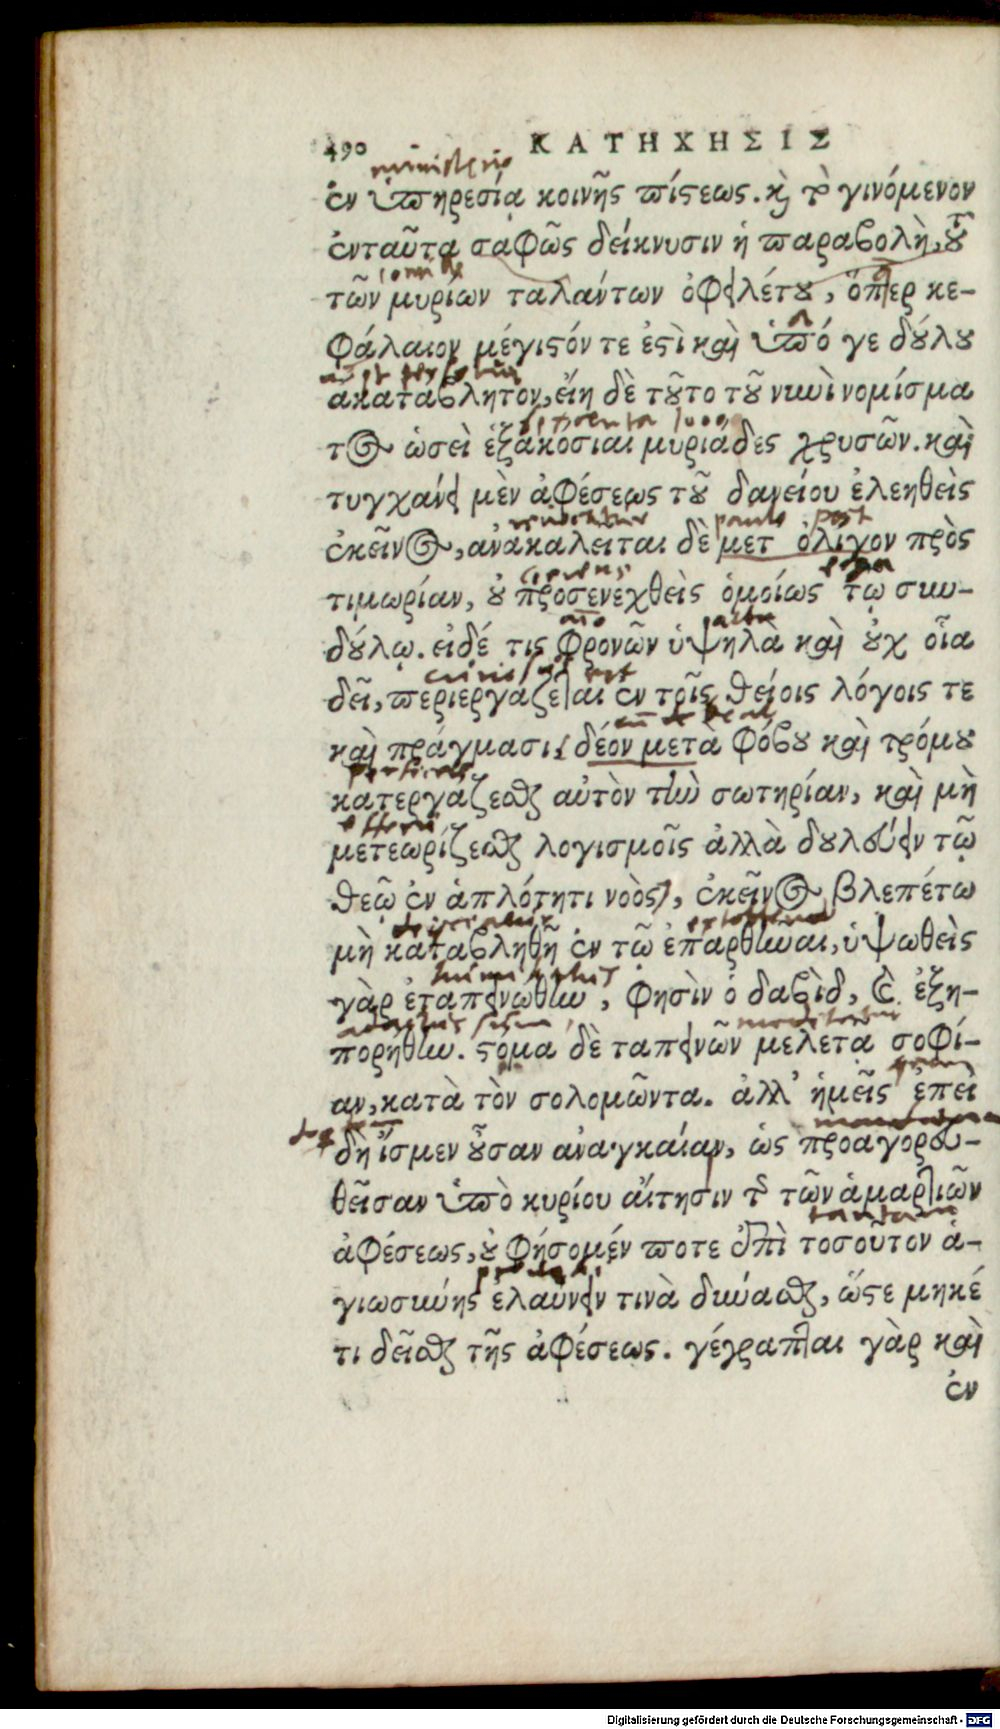 490 ΚΑΤΗΧΗΣΙΣ
ministerio
ἐν ὑπηρεσίᾳ κοινῆς πίστεως. καὶ τὸ γινόμενον
ἐνταῦτα σαφῶς δείκνυσιν ἡ παραβολὴ, οὗ
τῶν μυρίων ταλάντων ὀφειλέτου, ὅπερ κε-
φάλαιον μέγιστόν τε ἐστὶ καὶ ὑπό γε δούλου
ακαταβλητον, εἴη δὲ τοῦτο τοῦ νυνὶ νομίσμα
τος ὡσεὶ ἑξακοσιαι μυριαδες χρυσῶν. καὶ
τυγχάνει μὲν ἀφέσεως τοῦ δανείου ἐλεηθεὶς
paulo post
ἐκεῖνος, ανακαλειται δὲ μετ ολιγον πρὸς
τιμωρίαν, οὐ προσενεχθεὶς ὁμοίως τῳ συν-
alta
δούλῳ. εἰδέ τις φρονῶν ὑψηλα καὶ οὐχ οἷα
δεῖ, περιεργαζεται ἐν τοῖς θείοις λόγοις τε
καὶ πράγμασι, δέον μετὰ φόβου καὶ τρόμου
κατεργαζεσθαι αὐτὸν τὴν σωτηρίαν, καὶ μὴ
μετεωρίζεσθαι λογισμοῖς ἀλλὰ δουλεύειν τῷ
θεῷ ἐν ἁπλότητι νοὸς, ἐκεῖνος βλεπέτω
μὴ καταβληθῇ ἐν τῷ ἐπαρθῆναι, ὑψωθεὶς
γὰρ ἐταπεινώθην, φησὶν ὁ δαβὶδ, καὶ ἐξη-
πορηθην. στομα δὲ ταπεινῶν μελετα σοφί-
αν, κατὰ τὸν σολομῶντα. ἀλλ’ ἡμεῖς ἐπεὶ
δὴ ἴσμεν οὖσαν αναγκαίαν, ὡς προαγορευ-
θεῖσαν ὑπὸ κυρίου αἴτησιν τῆς τῶν ἁμαρτιῶν
ἀφέσεως, οὐ φήσομέν ποτε ἐπὶ τοσοῦτον ἁ-
γιωσύνης ἐλαύνειν τινὰ δύνασθαι, ὥστε μηκέ
τι δεῖσθαι τῆς ἀφέσεως. γέγραπται γὰρ καὶ
ἐν
Digitalisierung gefördert durch die Deutsche Forschungsgemeinschaft - DFG